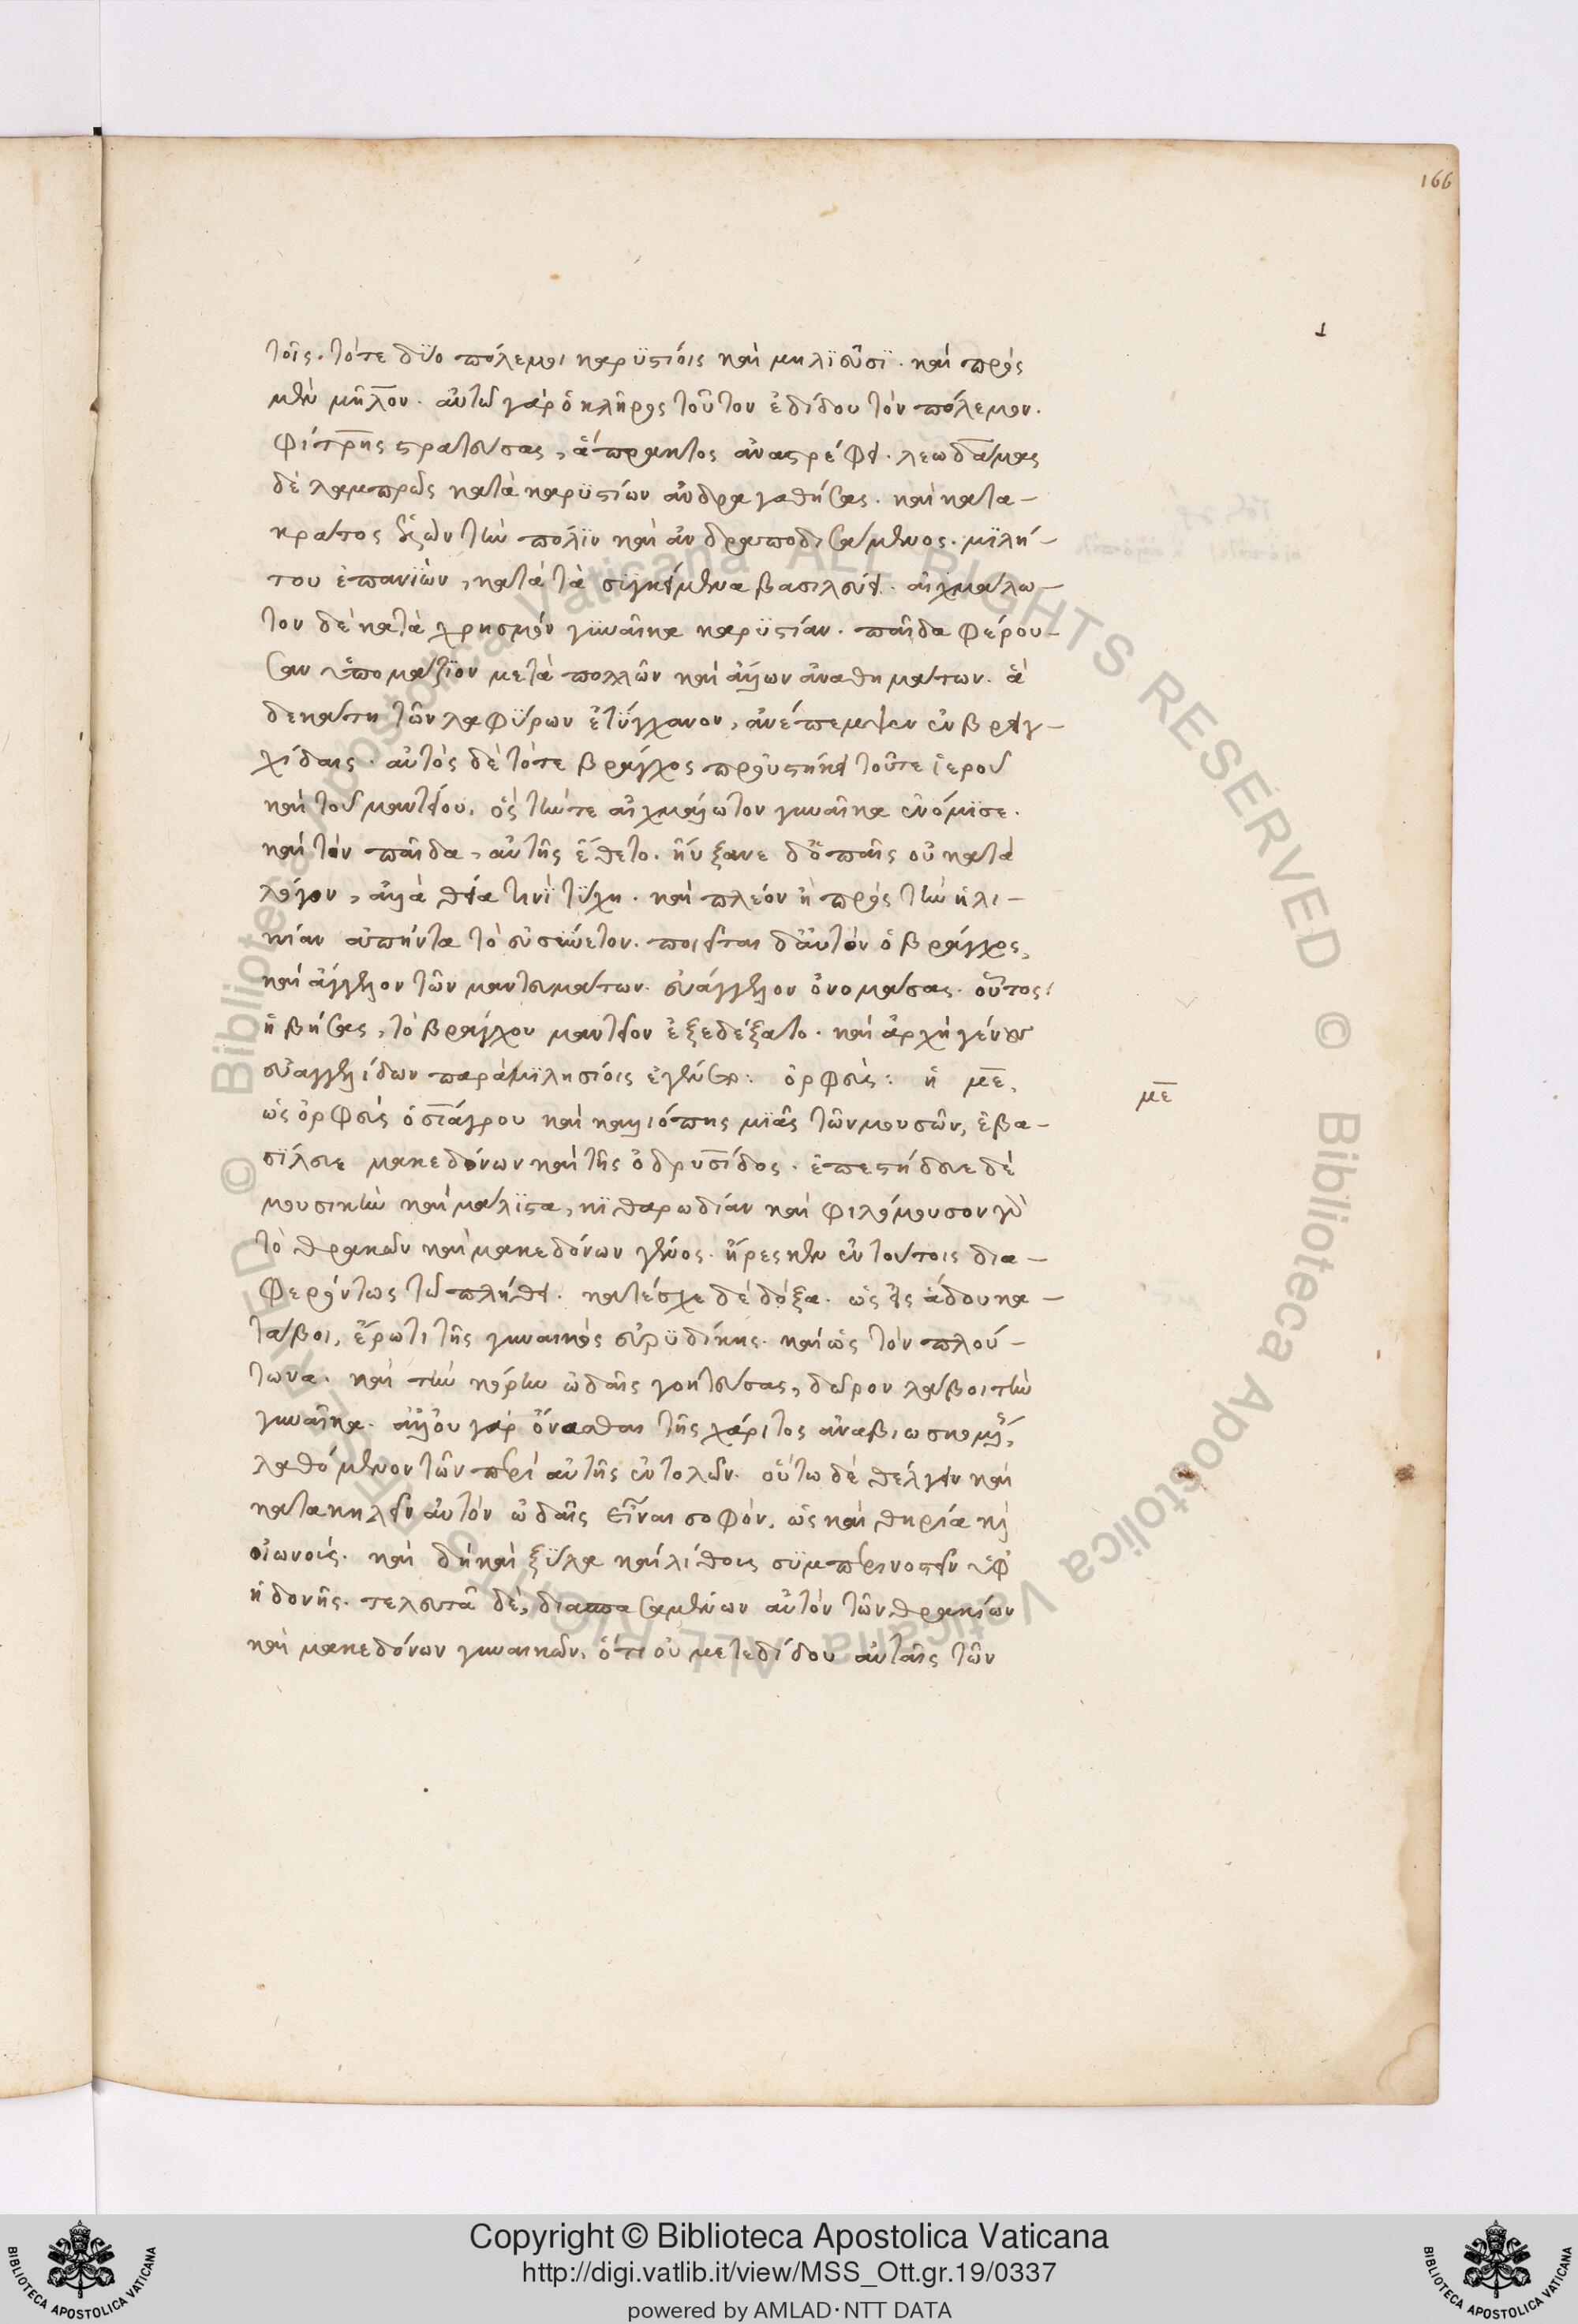 166
1
τοῖς. τότε δϋο πόλεμοι καρϋστίοις καὶ μηλϊεῦσϊ. καὶ πρὸς
μὲν μῆλον. αὐτῶ γὰρ ὁ κλῆρος τοῦτον ἐδίδου τὸν πόλεμον.
φίτρης στρατεύσας, ἄπρακτος ἀναστρέφει. λεωδάμας
δὲ λαμπρῶς κατὰ καρϋστίων ἀνδραγαθήσας. καὶ κατα-
κράτος ἑλὼν τὴν πόλϊν καὶ ἀνδραποδισάμενος. μϊλή-
του ἐπανϊὼν, κατὰ τὰ σϋγκείμενα βασιλεύει. αἰχμάλω-
τον δὲ κατὰ χρησμὸν γϋναῖκα καρϋστίαν. παῖδα φέρου-
σαν ὑπομάζϊον μετὰ πολλῶν καὶ ἄλλων ἀναθημάτων. ἃ
δεκάτη τῶν λαφϋρων ἐτϋγχανον, ἀνέπεμψεν ἐν βραγ-
χίδαις. αὐτὸς δὲ τότε βράγχος προϋστήκει τοῦτε ἱεροῦ
καὶ τοῦ μαντείου. ὃς τήντε αἰχμάλωτον γυναῖκα ἐνόμϊσε.
καὶ τὸν παῖδα, αὐτῆς ἔθετο. ἤυξανε δ' ὁ παῖς οὐ κατὰ
λόγον, ἀλλὰ θεία τινϊ τϋχη. καὶ πλέον ἢ πρὸς τὴν ἡλι-
κίαν ἀπήντα τὸ εὐσύνετον. ποιεῖται δ' αὐτὸν ὁ βράγχος,
καὶ ἄγγελον τῶν μαντευμάτων. εὐάγγελον ὀνομάσας. οὗτος
ἡβήσας, τὸ βράγχου μαντεῖον ἐξεδέξατο. καὶ ἀρχὴ γένους
εὐαγγελίδων παρὰ μϊλησίοις ἐγένετο: ὀρφεὺς: ἡ με,
με
ὡς ὀρφεὺς ὁ οἰάγρου καὶ καλλιόπης μϊᾶς τῶν μουσῶν, ἐβα-
σϊλευε μακεδόνων καὶ τῆς ὀδρυσίδος. ἐπετήδευε δὲ
μουσικὴν καὶ μάλϊστα, κϊθαρωδίαν καὶ φιλόμουσον γὰρ
τὸ θρακῶν καὶ μακεδόνων γένος. ἤρεσκεν ἐν τούτοις δια-
φερόντως τῶ πλήθει. κατέσχε δὲ δόξα. ὡς εἰς ἅδου κα-
ταβοι, ἔρωτι τῆς γυναικὸς εὐρϋδίκης. καὶ ὡς τὸν πλού-
τωνα. καὶ τὴν κόρην ὠδαῖς γοητεύσας, δῶρον λάβοι τὴν
γυναῖκα. ἀλλ' οὐ γὰρ ὄνασθαι τῆς χάριτος ἀναβιωσκομένης,
λαθόμενον τῶν περὶ αὐτῆς ἐντολῶν. οὕτω δὲ θέλγειν καὶ
κατακηλεῖν αὐτὸν ὠδαῖς εἶναι σοφὸν. ὡς καὶ θηρία καὶ
οἰωνοὺς. καὶ δὴ καὶ ξϋλα καὶ λίθους σϋμπερινοστεῖν ὑφ'
ἡδονῆς. τελευτᾶ δὲ, διασπασαμένων αὐτὸν τῶν θρακίων
καὶ μακεδόνων γυναικῶν, ὅτι οὐ μετεδίδου αὐταῖς τῶν
© Biblioteca Apostolica Vaticana ALL RIGHTS RESERVED © Biblioteca Apostolica Vaticana ALL RIGHTS RESERVED
BIBLIOTECA APOSTOLICA VATICANA
Copyright © Biblioteca Apostolica Vaticana
http://digi.vatlib.it/view/MSS_Ott.gr.19/0337
powered by AMLAD·NTT DATA
BIBLIOTECA APOSTOLICA VATICANA